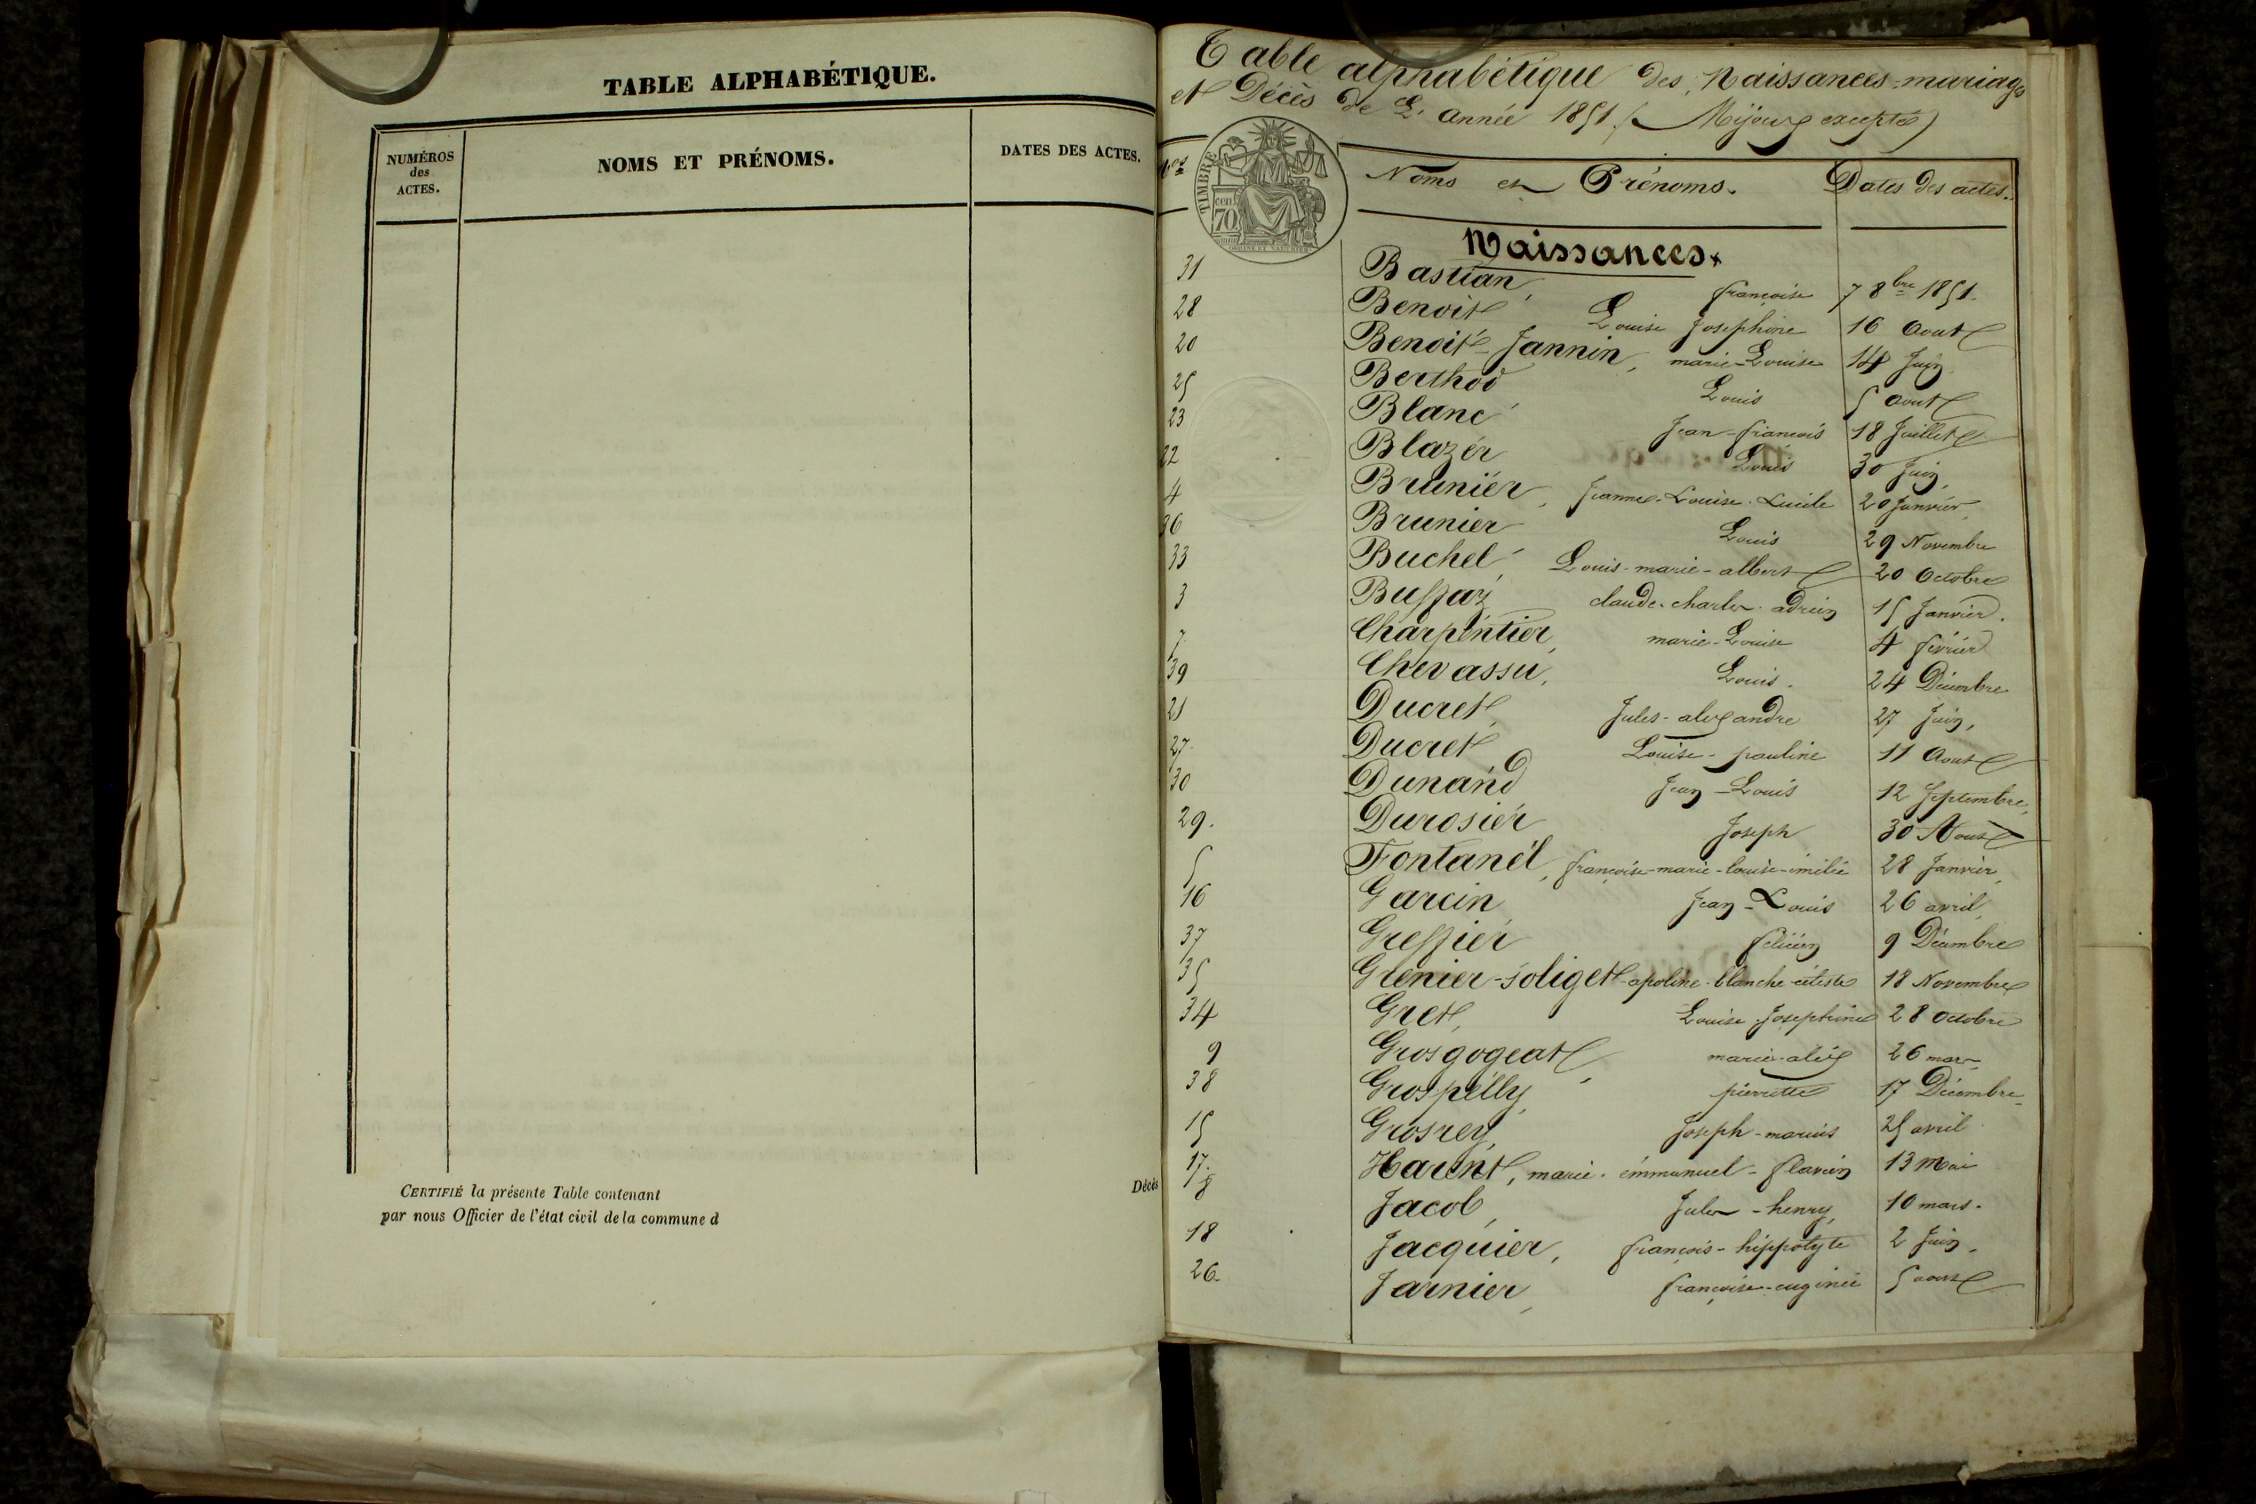 TABLE ALPHABÉTIQUE.
NUMÉROS des ACTES.
NOMS ET PRÉNOMS.
DATES DES ACTES.
CERTIFIÉ la présente Table contenant
Décès
par nous Officier de l'état civil de la commune d
Table alphabétique des Naissances-mariages
et Décès de L'année 1851 (Mijoux excepté)
Nos Noms et Prénoms. Dates des actes.
TIMBRE
cen 70
Naissances
31 Bastian, françoise 7 8bre 1851.
28 Benoit Louise Josephine 16 Aout
20 Benoit-Jannin, marie-Louise 14 Juin
25 Berthod Louis 5 aout
23 Blanc Jean-françois 18 Juillet
22 Blazer Louis 30 Juin
4 Brunier, Jeanne-Louise-Lucile 20 Janvier
36 Brunier Louis 29 Novembre
33 Buchel, Louis-marie-albert 20 Octobre
3 Buffaz claude-charles-adrien 15 Janvier.
7 Charpentier, marie-Louise 4 février
39 Chevassu, Louis. 24 Décembre
21 Ducret, Jules-alexandre 27 Juin,
27 Ducret Louise-pauline 11 Aout
30 Dunand Jean-Louis 12 Septembre
29. Durosier Joseph 30 Aout
5 Fontanel, françoise-marie-louise-émilie 28 Janvier
16 Garcin Jean-Louis 26 avril
37 Greffier félicien 9 Décembre
35 Grenier-Soliget-apoline-blanche-céleste 18 Novembre
34 Gret, Louise-Josephine 28 octobre
9 Grosgogeat, marie-alix 26 mars
38 Grospelly, pierrette 17 Décembre
15 Grosrey, Joseph-marius 25 avril
17. Harent, marie-émmanuel-flavien 13 Mai
8 Jacob, Jules-henry, 10 mars.
18 Jacquier, françois-hippolyte 2 Juin,
26. Jarnier, françoise-eugénie 5 aout